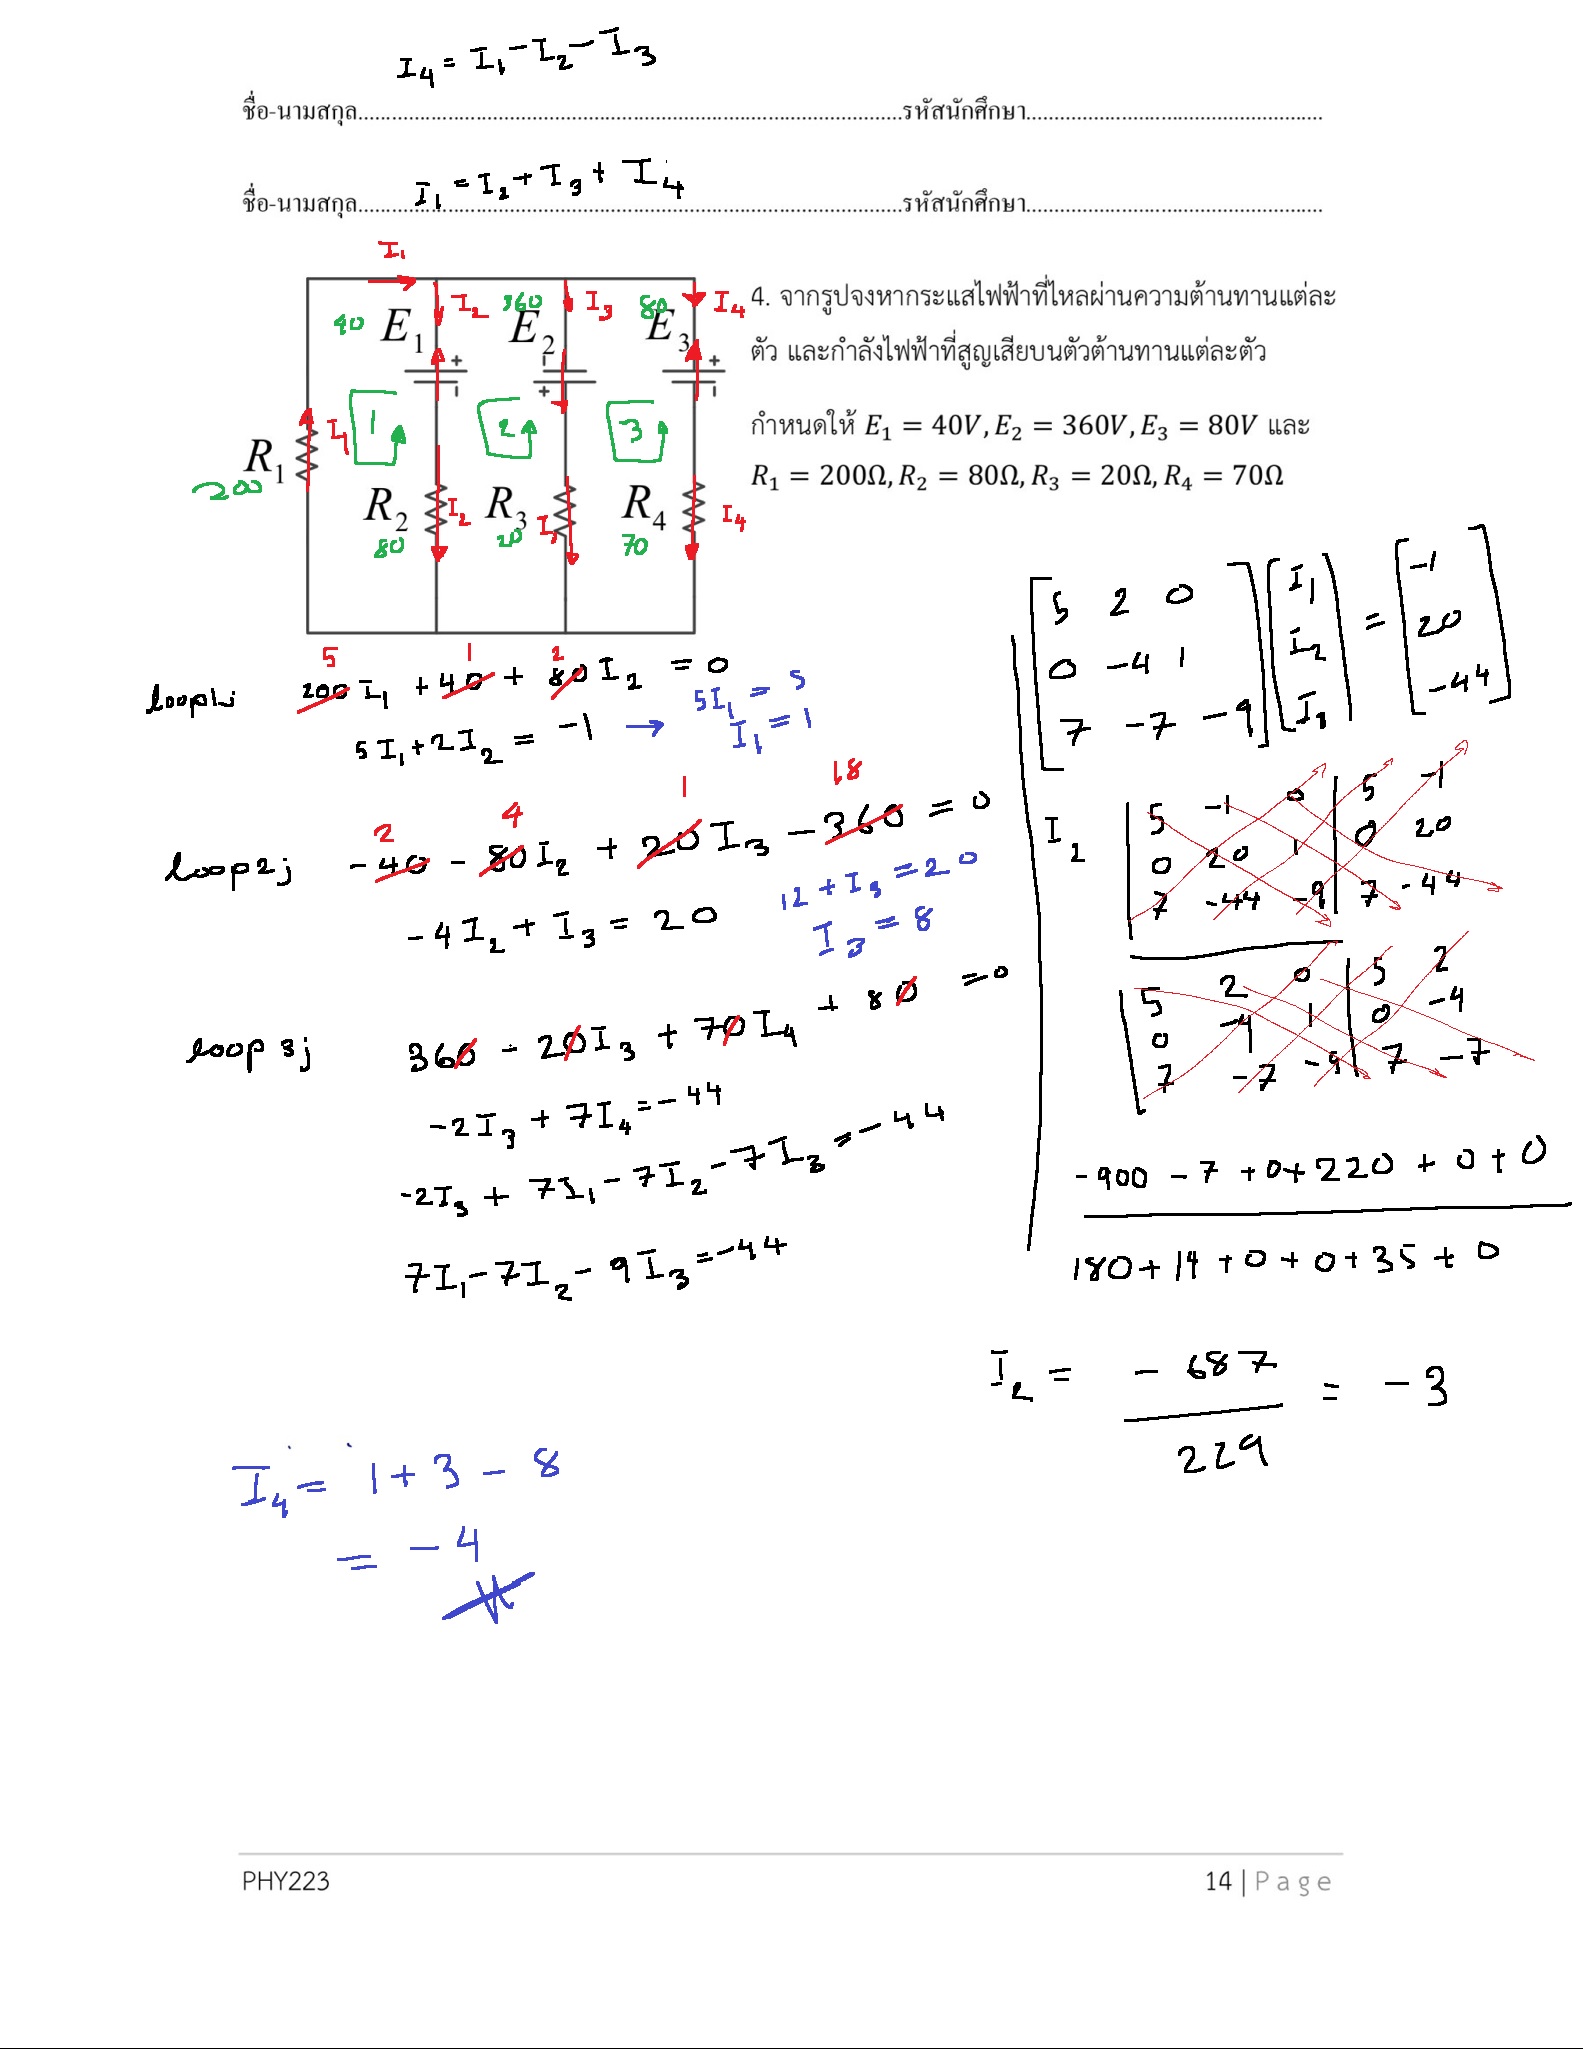 I4 = I1 - I2 - I3
ชื่อ-นามสกุล..........รหัสนักศึกษา..........
I1 = I2 + I3 + I4
ชื่อ-นามสกุล..........รหัสนักศึกษา..........
I1
I2 360 I3 80 I4
40 E1 E2 E3
+ +
+
1 2 3
I1
R1 200
R2 I2 R3 R4 I4
80 20 70
4. จากรูปจงหากระแสไฟฟ้าที่ไหลผ่านความต้านทานแต่ละ
ตัว และกำลังไฟฟ้าที่สูญเสียบนตัวต้านทานแต่ละตัว
กำหนดให้ E1 = 40V, E2 = 360V, E3 = 80V และ
R1 = 200Ω, R2 = 80Ω, R3 = 20Ω, R4 = 70Ω
5 1 2
loop1; 200I1 + 40 + 80I2 = 0
5I1 + 2I2 = -1 → 5I1 = 5
I1 = 1
2 4 1 18
loop2; -40 - 80I2 + 20I3 - 360 = 0
-4I2 + I3 = 20
12 + I3 = 20
I3 = 8
loop3; 360 - 20I3 + 70I4 + 80 = 0
-2I3 + 7I4 = -44
-2I3 + 7I1 - 7I2 - 7I3 = -44
7I1 - 7I2 - 9I3 = -44
5 2 0 I1 = -1
0 -4 1 I2 20
7 -7 -9 I3 -44
I2
5 -1 0 5 -1
0 20 1 0 20
7 -44 -9 7 -44
5 2 0 5 2
0 -4 1 0 -4
7 -7 -9 7 -7
-900 - 7 + 0 + 220 + 0 + 0
180 + 14 + 0 + 0 + 35 + 0
I2 = -687 = -3
229
I4 = 1 + 3 - 8
= -4
PHY223 14 | Page